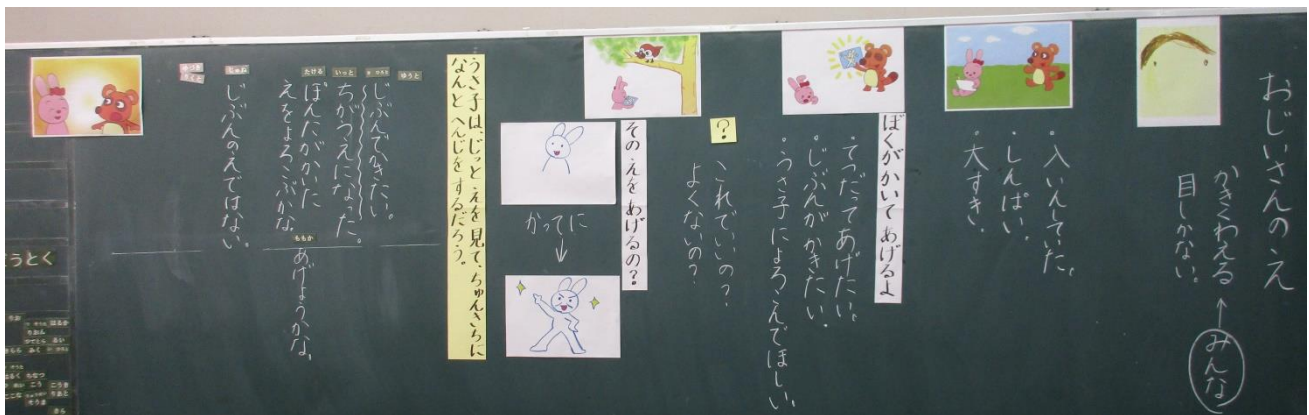 おじいさんのえ
かきくわえる←みんな
目しかない。
・入いんしていた。
・しんぱい。
・大すき。
ぼくがかいてあげるよ
・てつだってあげたい。
・じぶんがかきたい。
・うさ子によろこんでほしい。
?
これでいいの?
よくないの?
そのえをあげるの?
かってに
↓
うさ子は、じっとえを見て、ちゅんきちに
なんとへんじをするだろう。
ゆうと
じぶんでかきたい。
いっと
ちがうえになった。
たける
ぽんたがかいた
えをよろこぶかな。
ももか
あげようかな。
じぶんのえではない。
うとく
はるか
りおん
みく
こう
こうき
りあと
そうま
きら